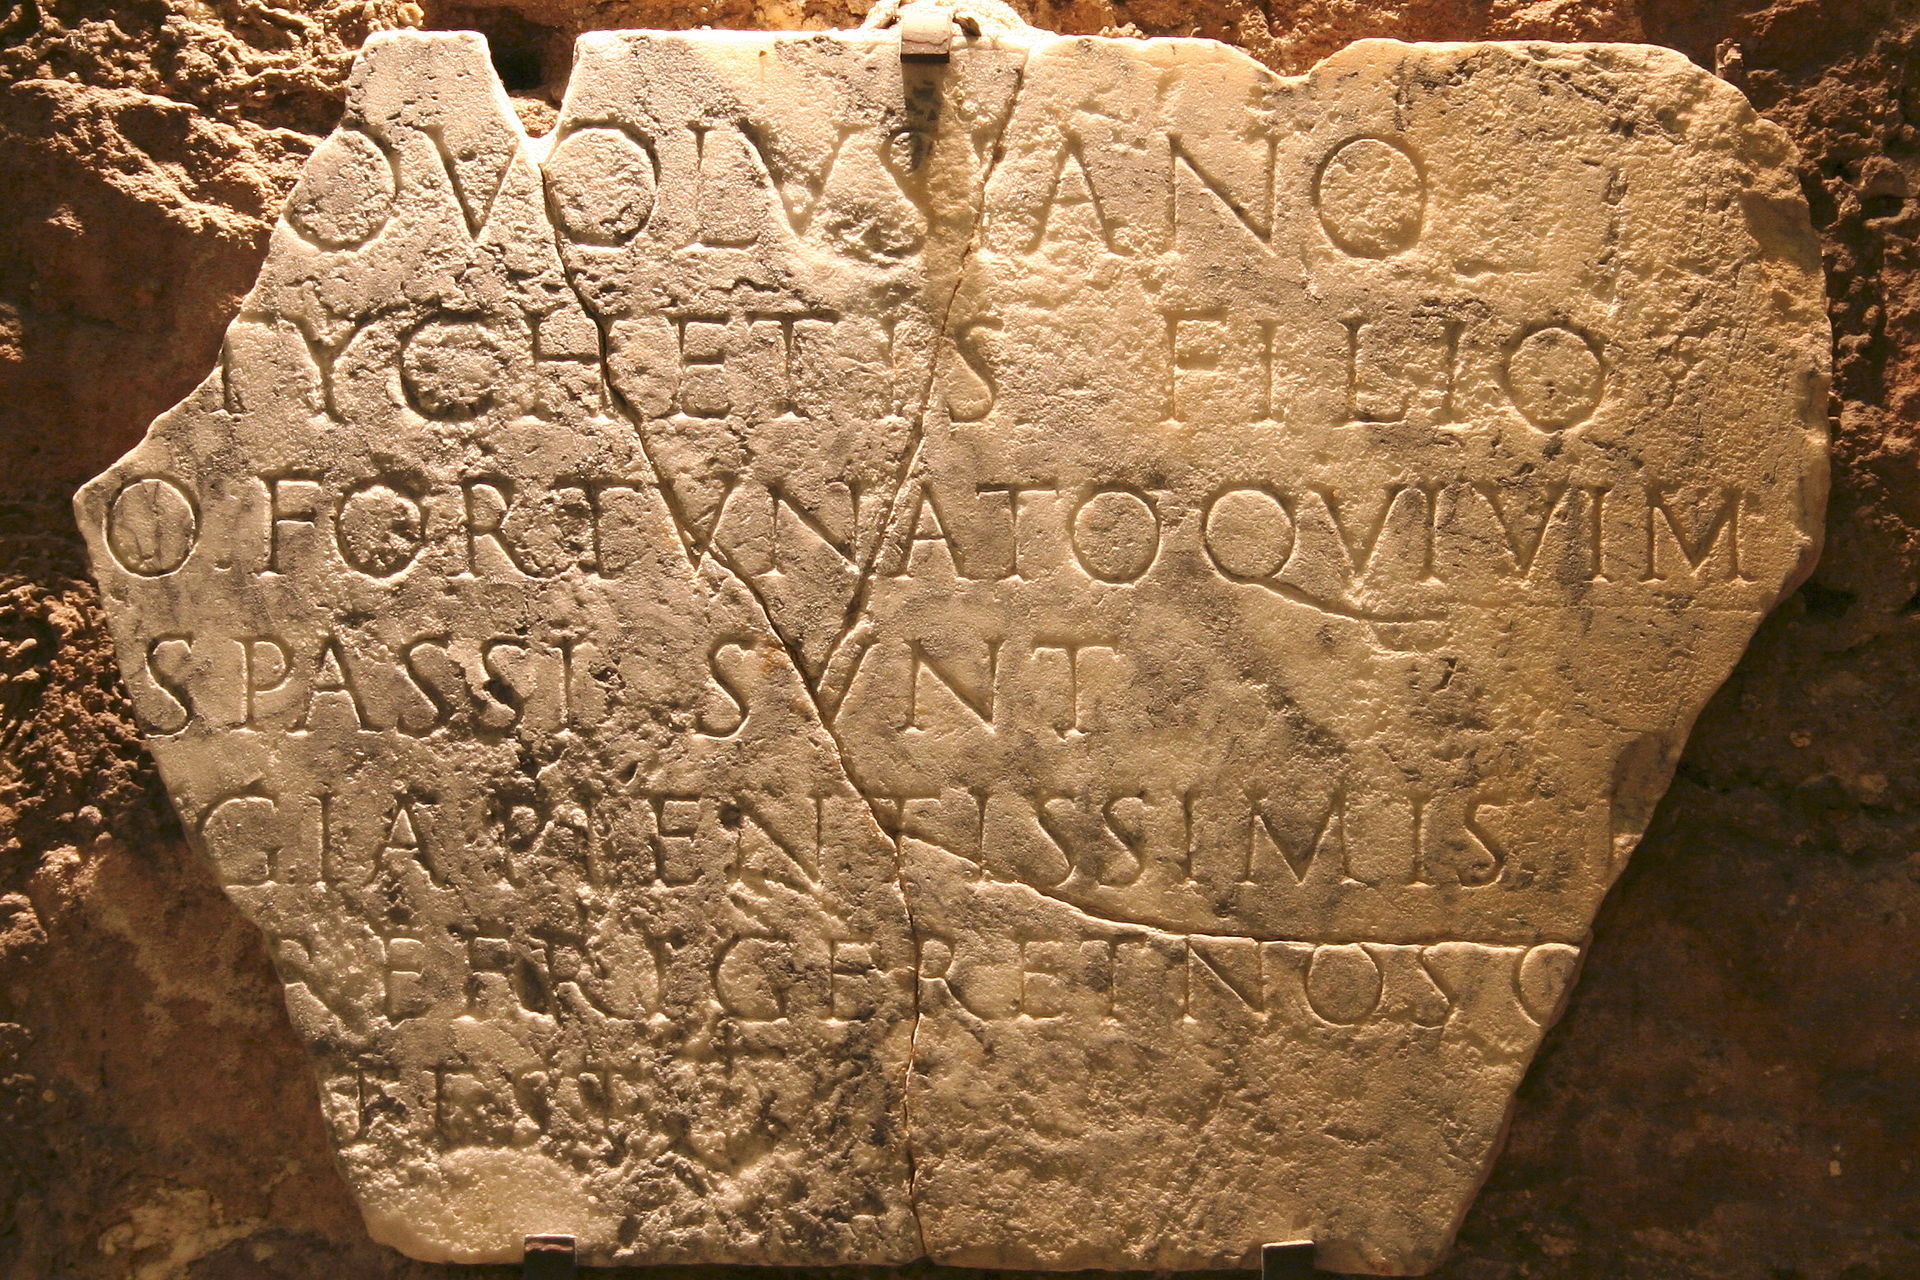 O VOLVSIANO
TYCHETIS FILIO
O. FORTVNATO QVI VIM
S PASSI SVNT
GIA PIENTISSIMIS
REFRIGERET NOS Q